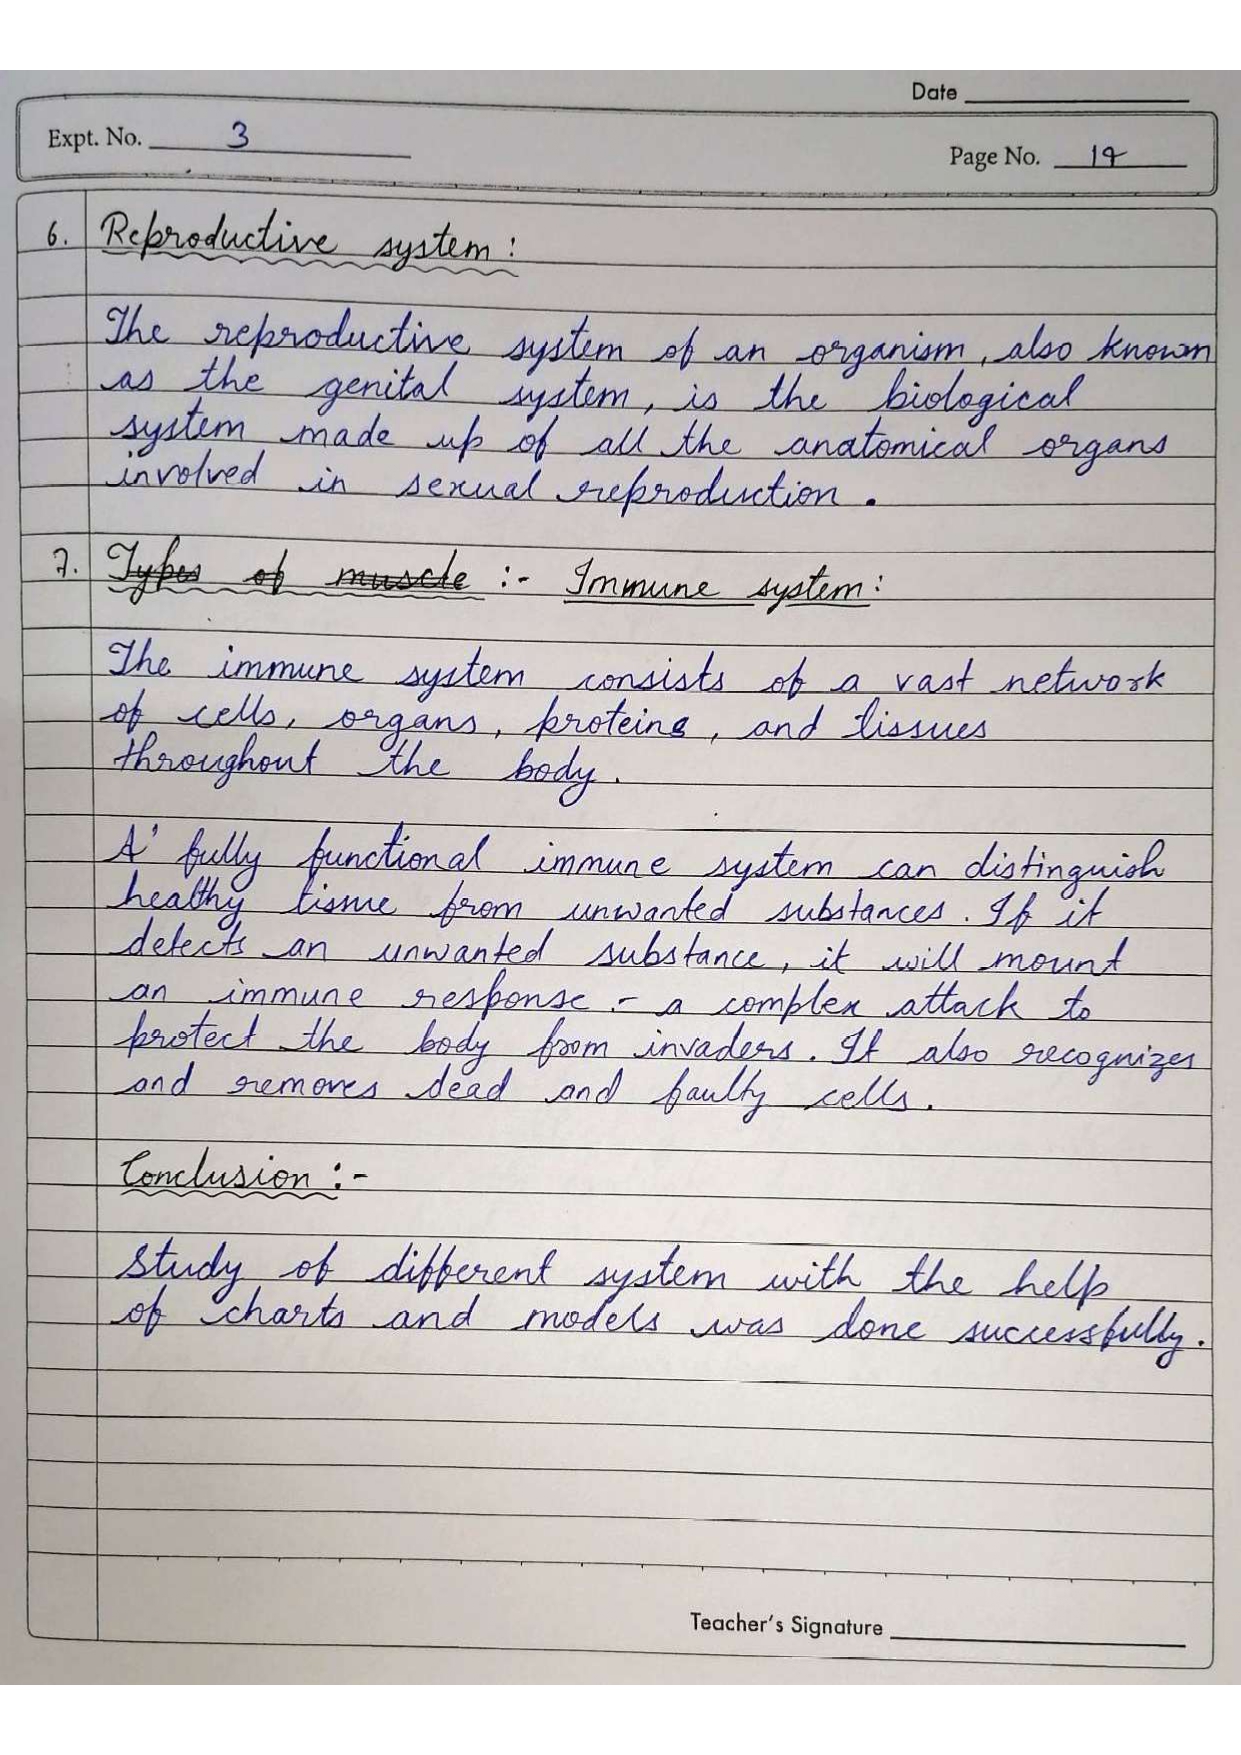 Date
Expt. No. 3
Page No. 19
6. Reproductive system:
The reproductive system of an organism, also known
as the genital system, is the biological
system made up of all the anatomical organs
involved in sexual reproduction.
7. Types of muscle :- Immune system:
The immune system consists of a vast network
of cells, organs, proteins, and tissues
throughout the body.
A fully functional immune system can distinguish
healthy tisme from unwanted substances. If it
detects an unwanted substance, it will mount
an immune response - a complex attack to
protect the body from invaders. It also recognizes
and removes dead and faulty cells.
Conclusion :-
Study of different system with the help
of charts and models was done successfully.
Teacher's Signature